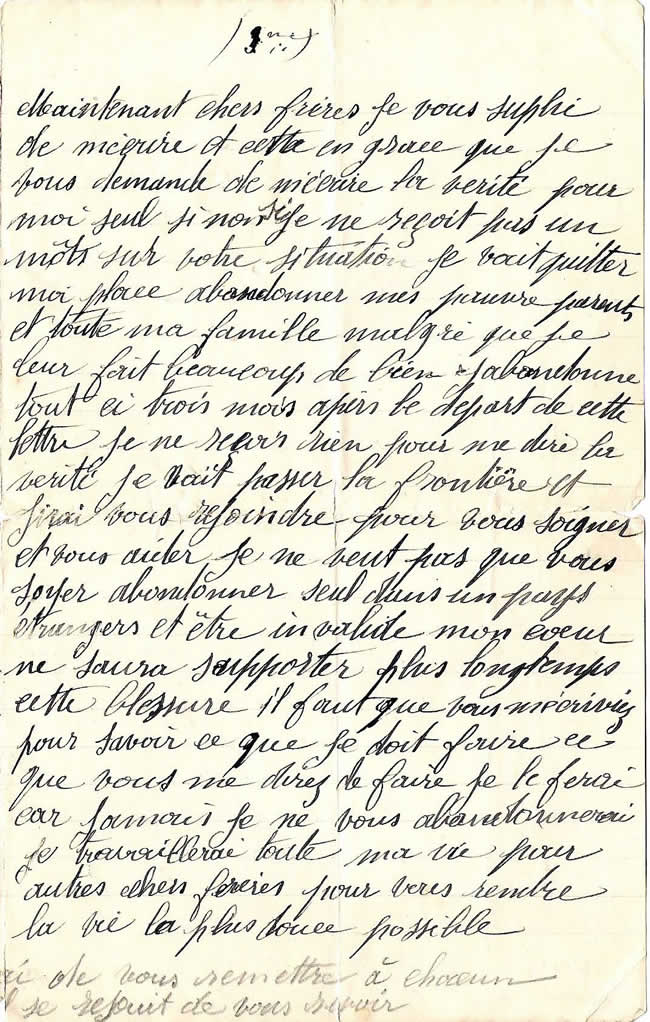 Maintenant chers frères je vous suplie
de mécrire et cette en grace que je
vous demande de mécrire la verité pour
moi seul si non si je ne reçoit pas un
môts sur votre situation je vait quitter
ma place abandonner mes pauvre parents
et toute ma famille malgré que je
leur fait beaucoup de bien j'abandonne
tout ci trois mois apèrs le depart de cette
lettre je ne reçois rien pour me dire la
verité je vait passer la frontière et
jirai vous rejoindre pour vous soigner
et vous aider je ne veut pas que vous
soyer abandonner seul dans un pays
etrangers et être invalide mon coeur
ne saura supporter plus longtemps
cette blessure il faut que vous mécriviez
pour savoir ce que je doit faire ce
que vous me direz de faire je le ferai
car jamais je ne vous abandonnerai
je travaillerai toute ma vie pour
autres chers freres pour vous rendre
la vie la plus douce possible
de vous remettre à chacun
se rejouit de vous revoir